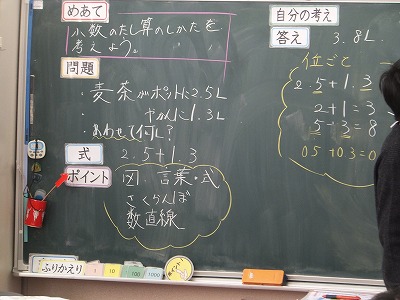 めあて
小数のたし算のしかたを
考えよう。
問題
・麦茶がポットに2.5L
やかんに1.3L
・あわせて何L?
式 2.5+1.3
ポイント
図 言葉・式
さくらんぼ
数直線
ふりかえり
1 10 100 1000
ポイント
自分の考え
答え 3.8L
位ごと
2.5+1.3
2+1=3
5+3=8
0.5+0.3=0